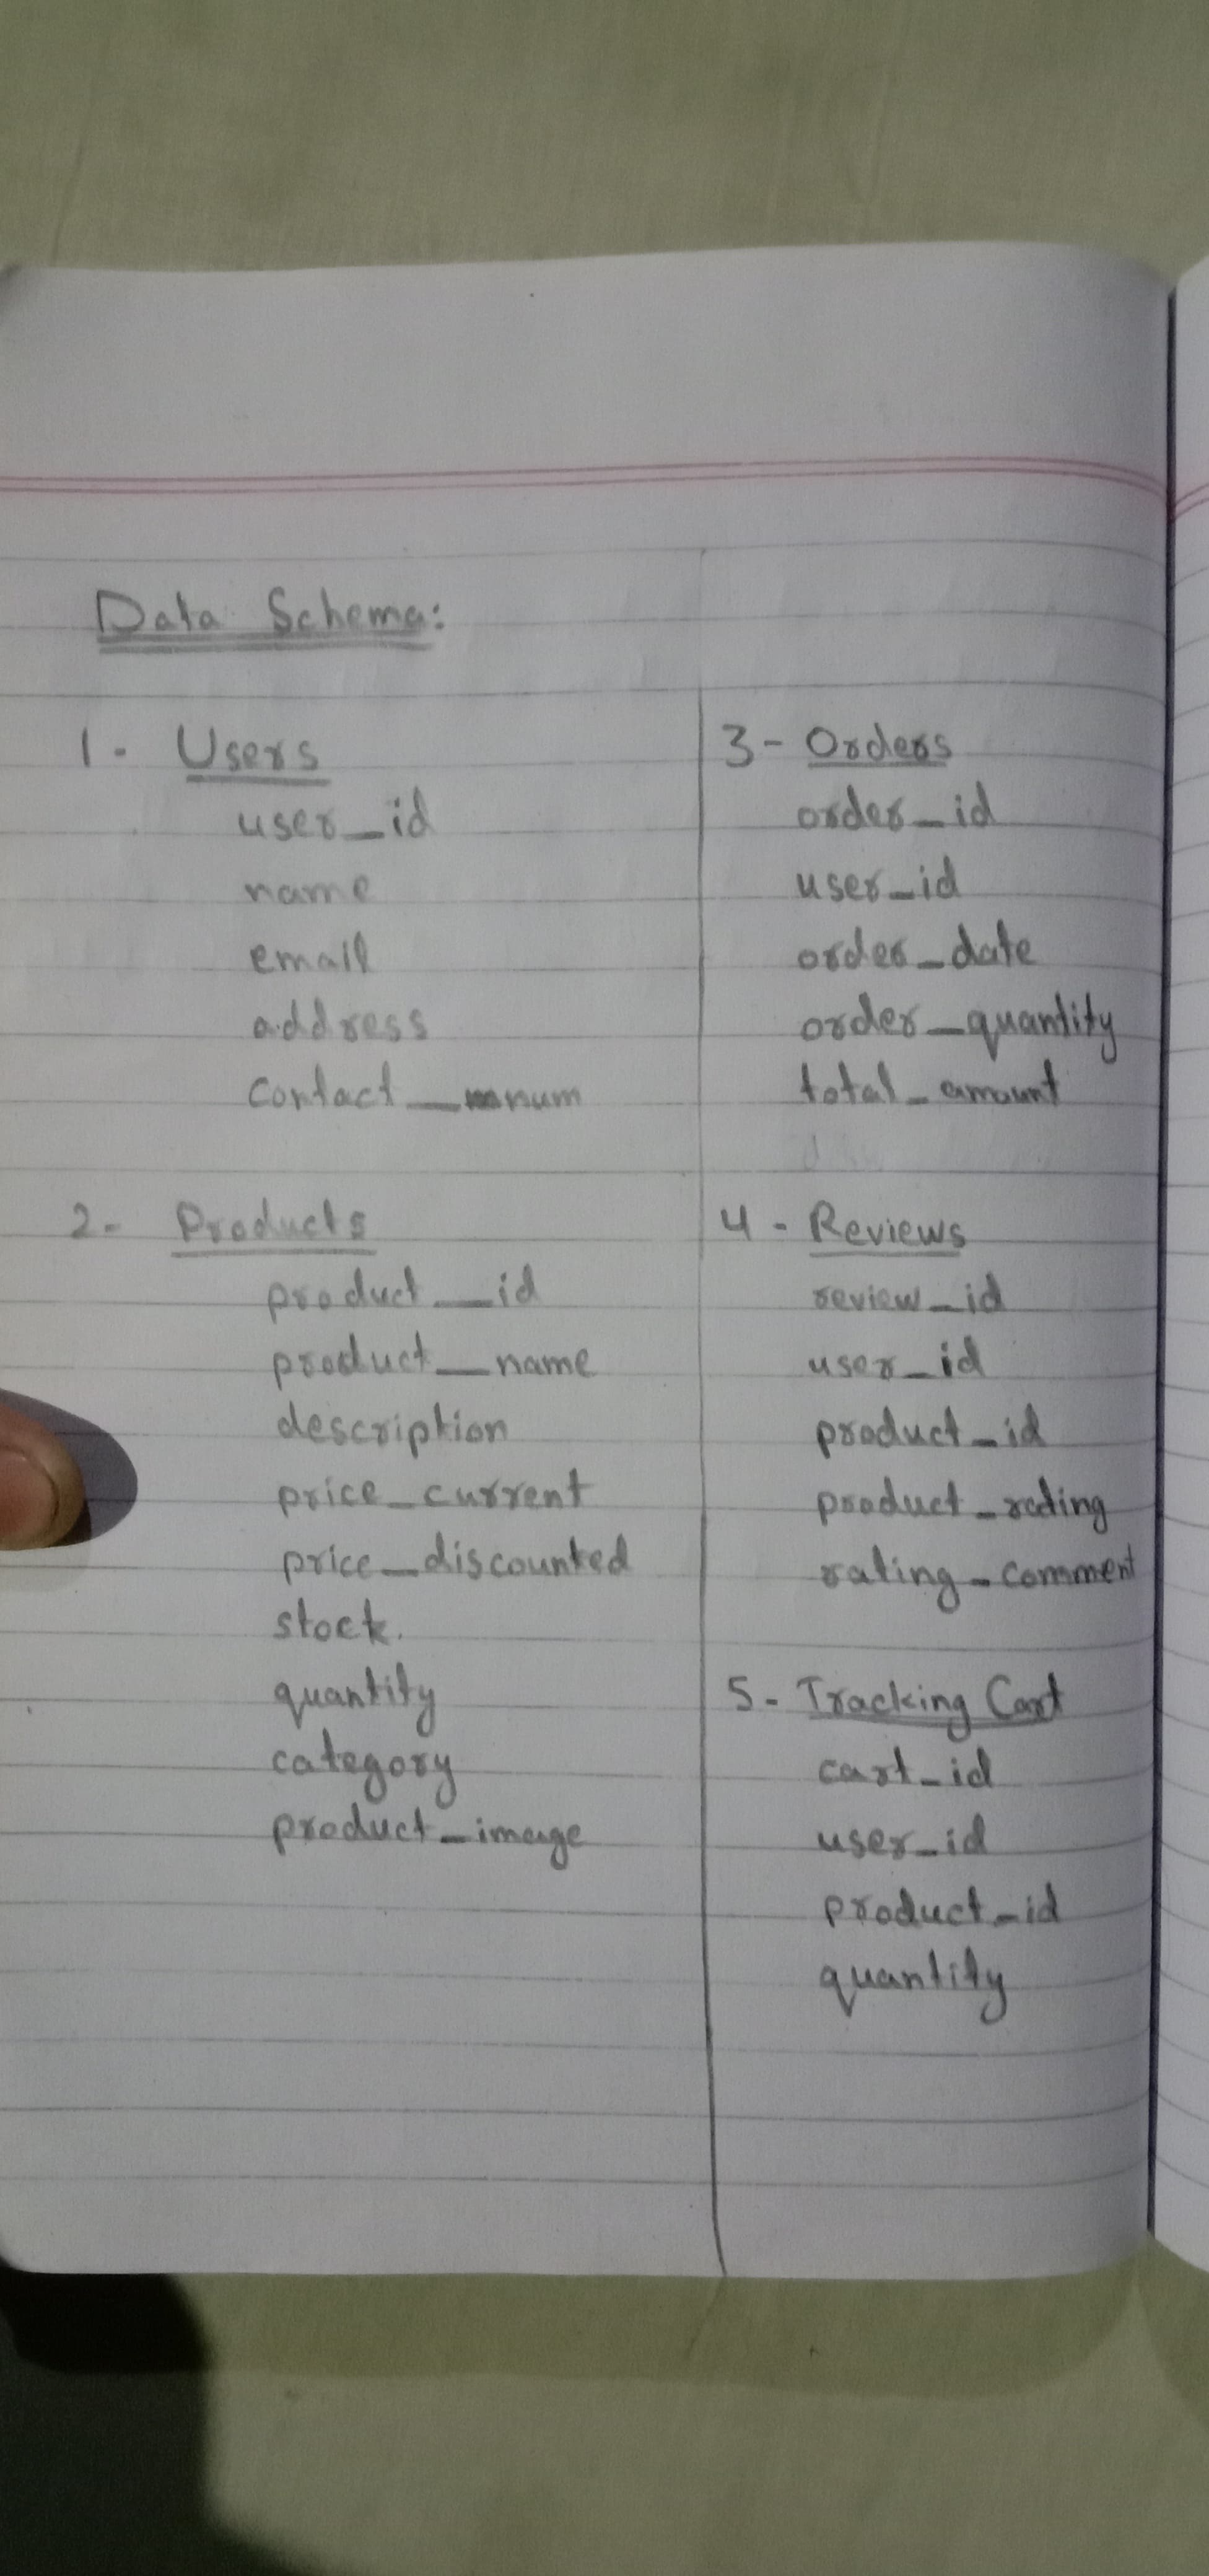 Data Schema:
1- Users
user_id
name
email
address
contact_num
2- Products
product_id
product_name
description
price_current
price_discounted
stock.
quantity
category
product_image
3- Orders
order_id
user_id
order_date
order_quantity
total_amount
4- Reviews
review_id
user_id
product_id
product_rating
rating_comment
5- Tracking Cart
cart_id
user_id
product_id
quantity